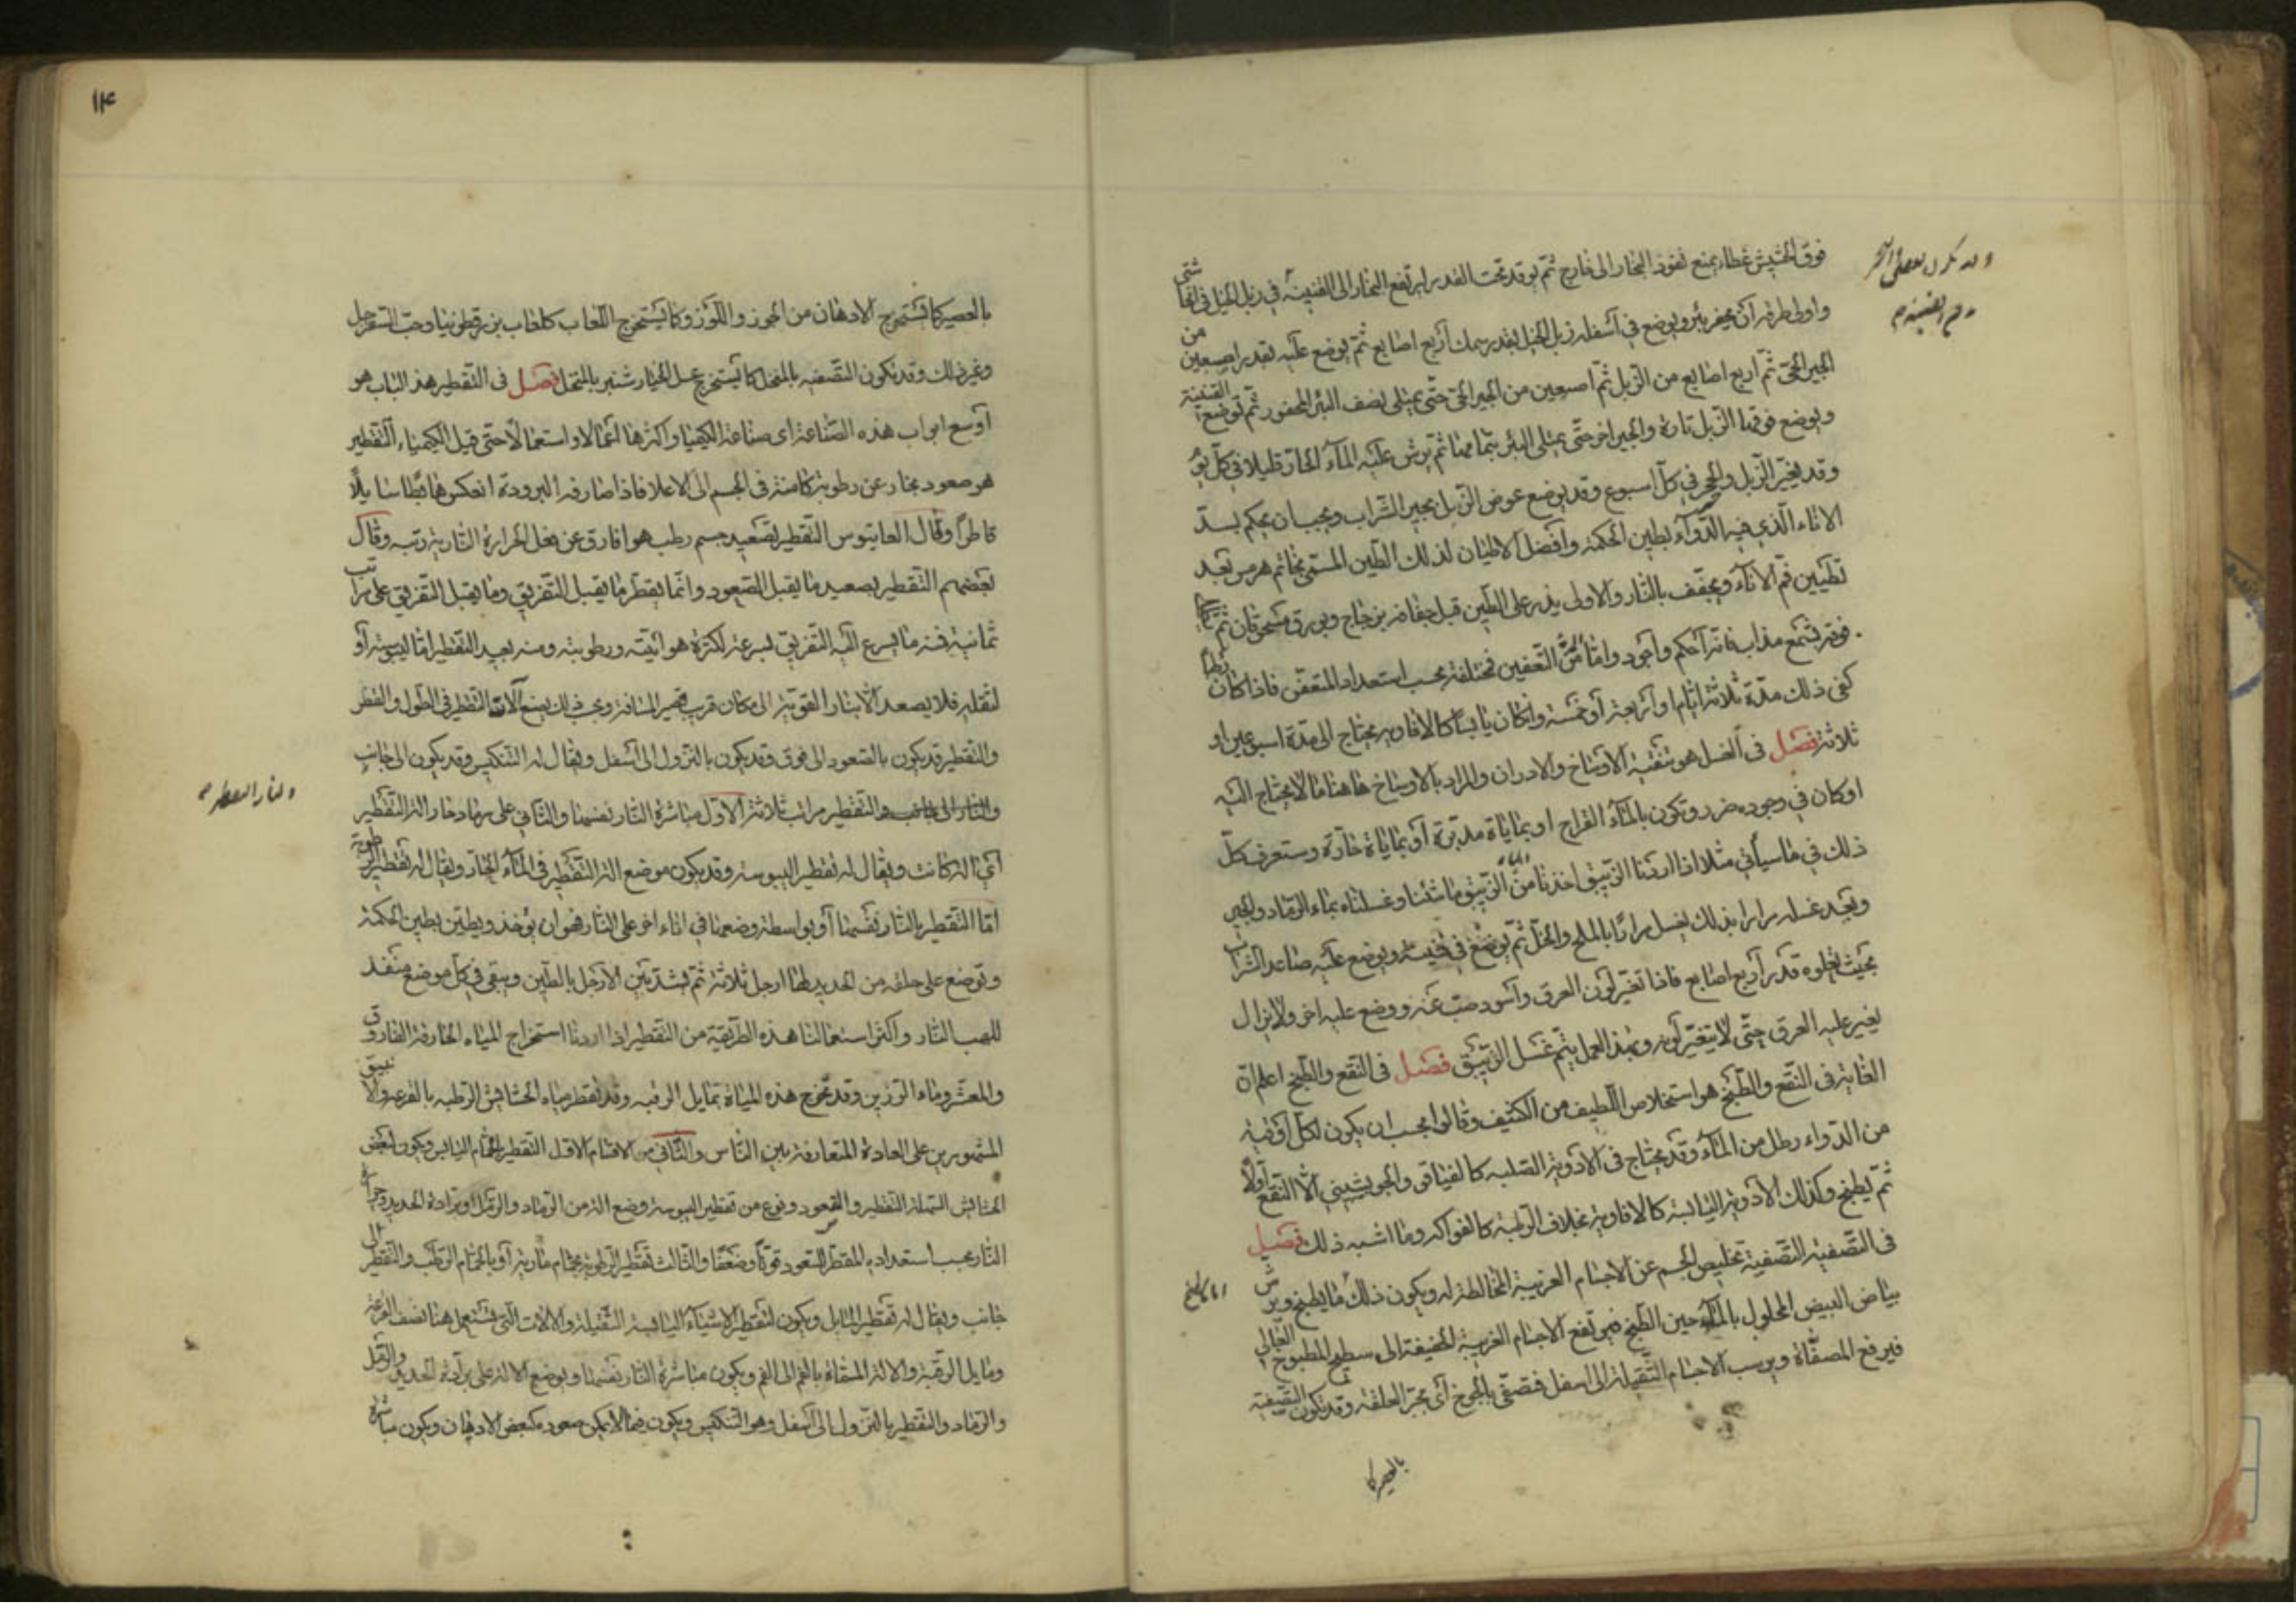 فوق الحشيش غطاء يمنع نفوذ البخار الى خارج ثم يوقد تحت القدر ليرتفع البخار الى القنينة في زبل الخيل في
واولى طرقه ان يحفر بئر ويوضع في اسفله زبل الخيل بقدر سمك اربع اصابع ثم يوضع عليه بقدر اصبعين من
الجير الحي ثم اربع اصابع من الزبل ثم اصبعين من الجير الحي حتى يمتلى نصف البئر المحفور ثم توضع القنينة
ويوضع فوقها الزبل تارة والجير اخر حتى يمتلى البئر بتمامها ثم يرش عليه الماء الحار قليلا في كل يوم
وقد يغير الزبل والجير في كل اسبوع وقد يوضع عوض الزبل بجير الشراب ويجب ان يحكم بسد
الاناء الذي فيه الدواء بطين الحكمة وافضل الاطيان لذلك الطين المسمى بخاتم هرمس بعد
تطيين فم الاناء ويجفف بالنار والاولى يذر على الطين قبل جفافه زجاج وبورق مسحوقان ثم
فوقه بشمع مذاب فانه احكم واجود واما من التعفين فمختلفة بحسب استعداد المتعفن فاذا كان رطبا
كفى ذلك مدة ثلاثة ايام او اربعة او خمسة وان كان يابسا كالافاويه يحتاج الى مدة اسبوعين او
ثلاثة فصل في الغسل هو تنقية الاوساخ والادران والمراد بالاوساخ هاهنا ما لا يحتاج اليه
او كان في وجوده ضرر وتكون بالماء القراح او بماياة مدبرة او بماياة حارة وستعرف كل
ذلك في ما سياتي مثلا اذا اردنا الزيبق اخذنا من الزيبق ما شئنا وغسلناه بماء الرماد والجير
وبعد غسله مرارا بذلك يغسل مرارا بالملح والخل ثم يوضع في قنينة ويوضع عليه صاعد الشراب
بحيث يعلوه قدر اربع اصابع فاذا تغير لون العرق واسود صب عنه ووضع عليه اخر ولا يزال
يغير عليه العرق حتى لا يتغير لونه وبهذا العمل يتم غسل الزيبق فصل في النقع والطبخ اعلم ان
الغاية في النقع والطبخ هو استخلاص اللطيف من الكثيف وقالوا يجب ان يكون لكل اوقية
من الدواء رطل من الماء وقد يحتاج في الادوية الصلبة كالفياقي والجوبشيني الا النقع اولا
ثم يطبخ وكذلك الادوية اليابسة كالافاويه بخلاف الرطبة كالفواكه وما اشبه ذلك فصل
في التصفية التصفية تخليص الجسم عن الاجسام الغريبة المخالطة له ويكون ذلك ما يطبخ ويرش
بياض البيض المحلول بالماء حين الطبخ فيرتفع الاجسام الغريبة الخفيفة الى سطح المطبوخ الغالي
فيرفع المصفاة ويرسب الاجسام الثقيلة الى اسفل فتصفى بالجوخ اى بجر العلقه وقد يكون التصفية
بالعصير كما
١٤
بالعصير كما تستخرج الادهان من الجوز واللوز وكما يستخرج اللعاب كلعاب بزرقطونيا وحب السفرجل
وغير ذلك وقد تكون التصفية بالمنخل كما يستخرج عسل الخيار شنبر بالمنخل فصل في التقطير هذا الباب هو
اوسع ابواب هذه الصناعة اى صناعة الكيميا واكثرها اعمالا واستعمالا حتى قيل الكيمياء التقطير
هو صعود بخار عن رطوبة كامنة في الجسم الى الاعلا فاذا صادفه البرودة انعكس هابطا سايلا
قاطرا وقال التقطير تصعيد جسم رطب هوا فارق عن فعل الحرارة النارية رتبه وقال
بعضهم التقطير تصعيد ما يقبل الصعود وانما يقطر ما يقبل التفريق وما يقبل التفريق على مراتب
ثمانية فمنه ما يسرع اليه التفريق لسرعة لكثرة هوائيته ورطوبته ومنه بعيد التقطير اما ليبوسته او
لثقله فلا يصعد الا بنار القوية الى مكان قريب قصير المسافة وبحسب ذلك يضع آلات التقطير في الطول والقصر
والتقطير قد يكون بالصعود الى فوق وقد يكون بالنزول الى اسفل ويقال له التنكيس وقد يكون الى جانب
والنار الى جانب والتقطير مراتب ثلاثة الاول مباشرة النار نفسها والثاني على رماد حار الة التقطير
اي الة كانت ويقال له تقطير اليبوسة وقد يكون موضع الة التقطير في الماء الحار ويقال له تقطير الرطوبة
اما التقطير بالنار نفسها او بواسطة وضعها في اناء اخر على النار فهو ان يؤخذ ويطين بطين الحكمة
وتوضع على حلقه من الحديد لها ارجل ثلاثة ثم يشد بين الارجل بالطين ويبقى في كل موضع منفذ
للهب النار واكثر استعمالنا هذه الطريقة من التقطير اذا اردنا استخراج المياه الحارقة الفاروق
والمعشر وماء الرزين وقد تخرج هذه المياة بمايل الرقبه وقد تقطر مياه الحشايش الرطبه بالقرعه والانبيق
المشهورين على العادة المتعارفة بين الناس والثاني من الاقسام الاول التقطير بالحمام اليابس ويكون لبعض
الحشايش السهلة التقطير والصعود ونوع من تقطير اليبوسة وضع الة من الرماد والرمل او برادة الحديد
النار بحسب استعداد المقطر للصعود قوة وضعفا والثالث تقطير الرطوبة بحمام مارية او بالحمام الرطب والتقطير الى
جانب ويقال له تقطير المايل ويكون لتقطير الاشياء اليابسة الثقيلة والالات التي تستعمل هنا نصف القرعة
ومايل الرقبة والالة المسماة بالفم الى الفم ويكون مباشرة النار نفسها ويوضع الالة على برادة الحديد والرمل
والرماد والتقطير بالنزول الى اسفل وهو التنكيس ويكون فيما لا يمكن صعوده كبعض الادهان ويكون مباشرة